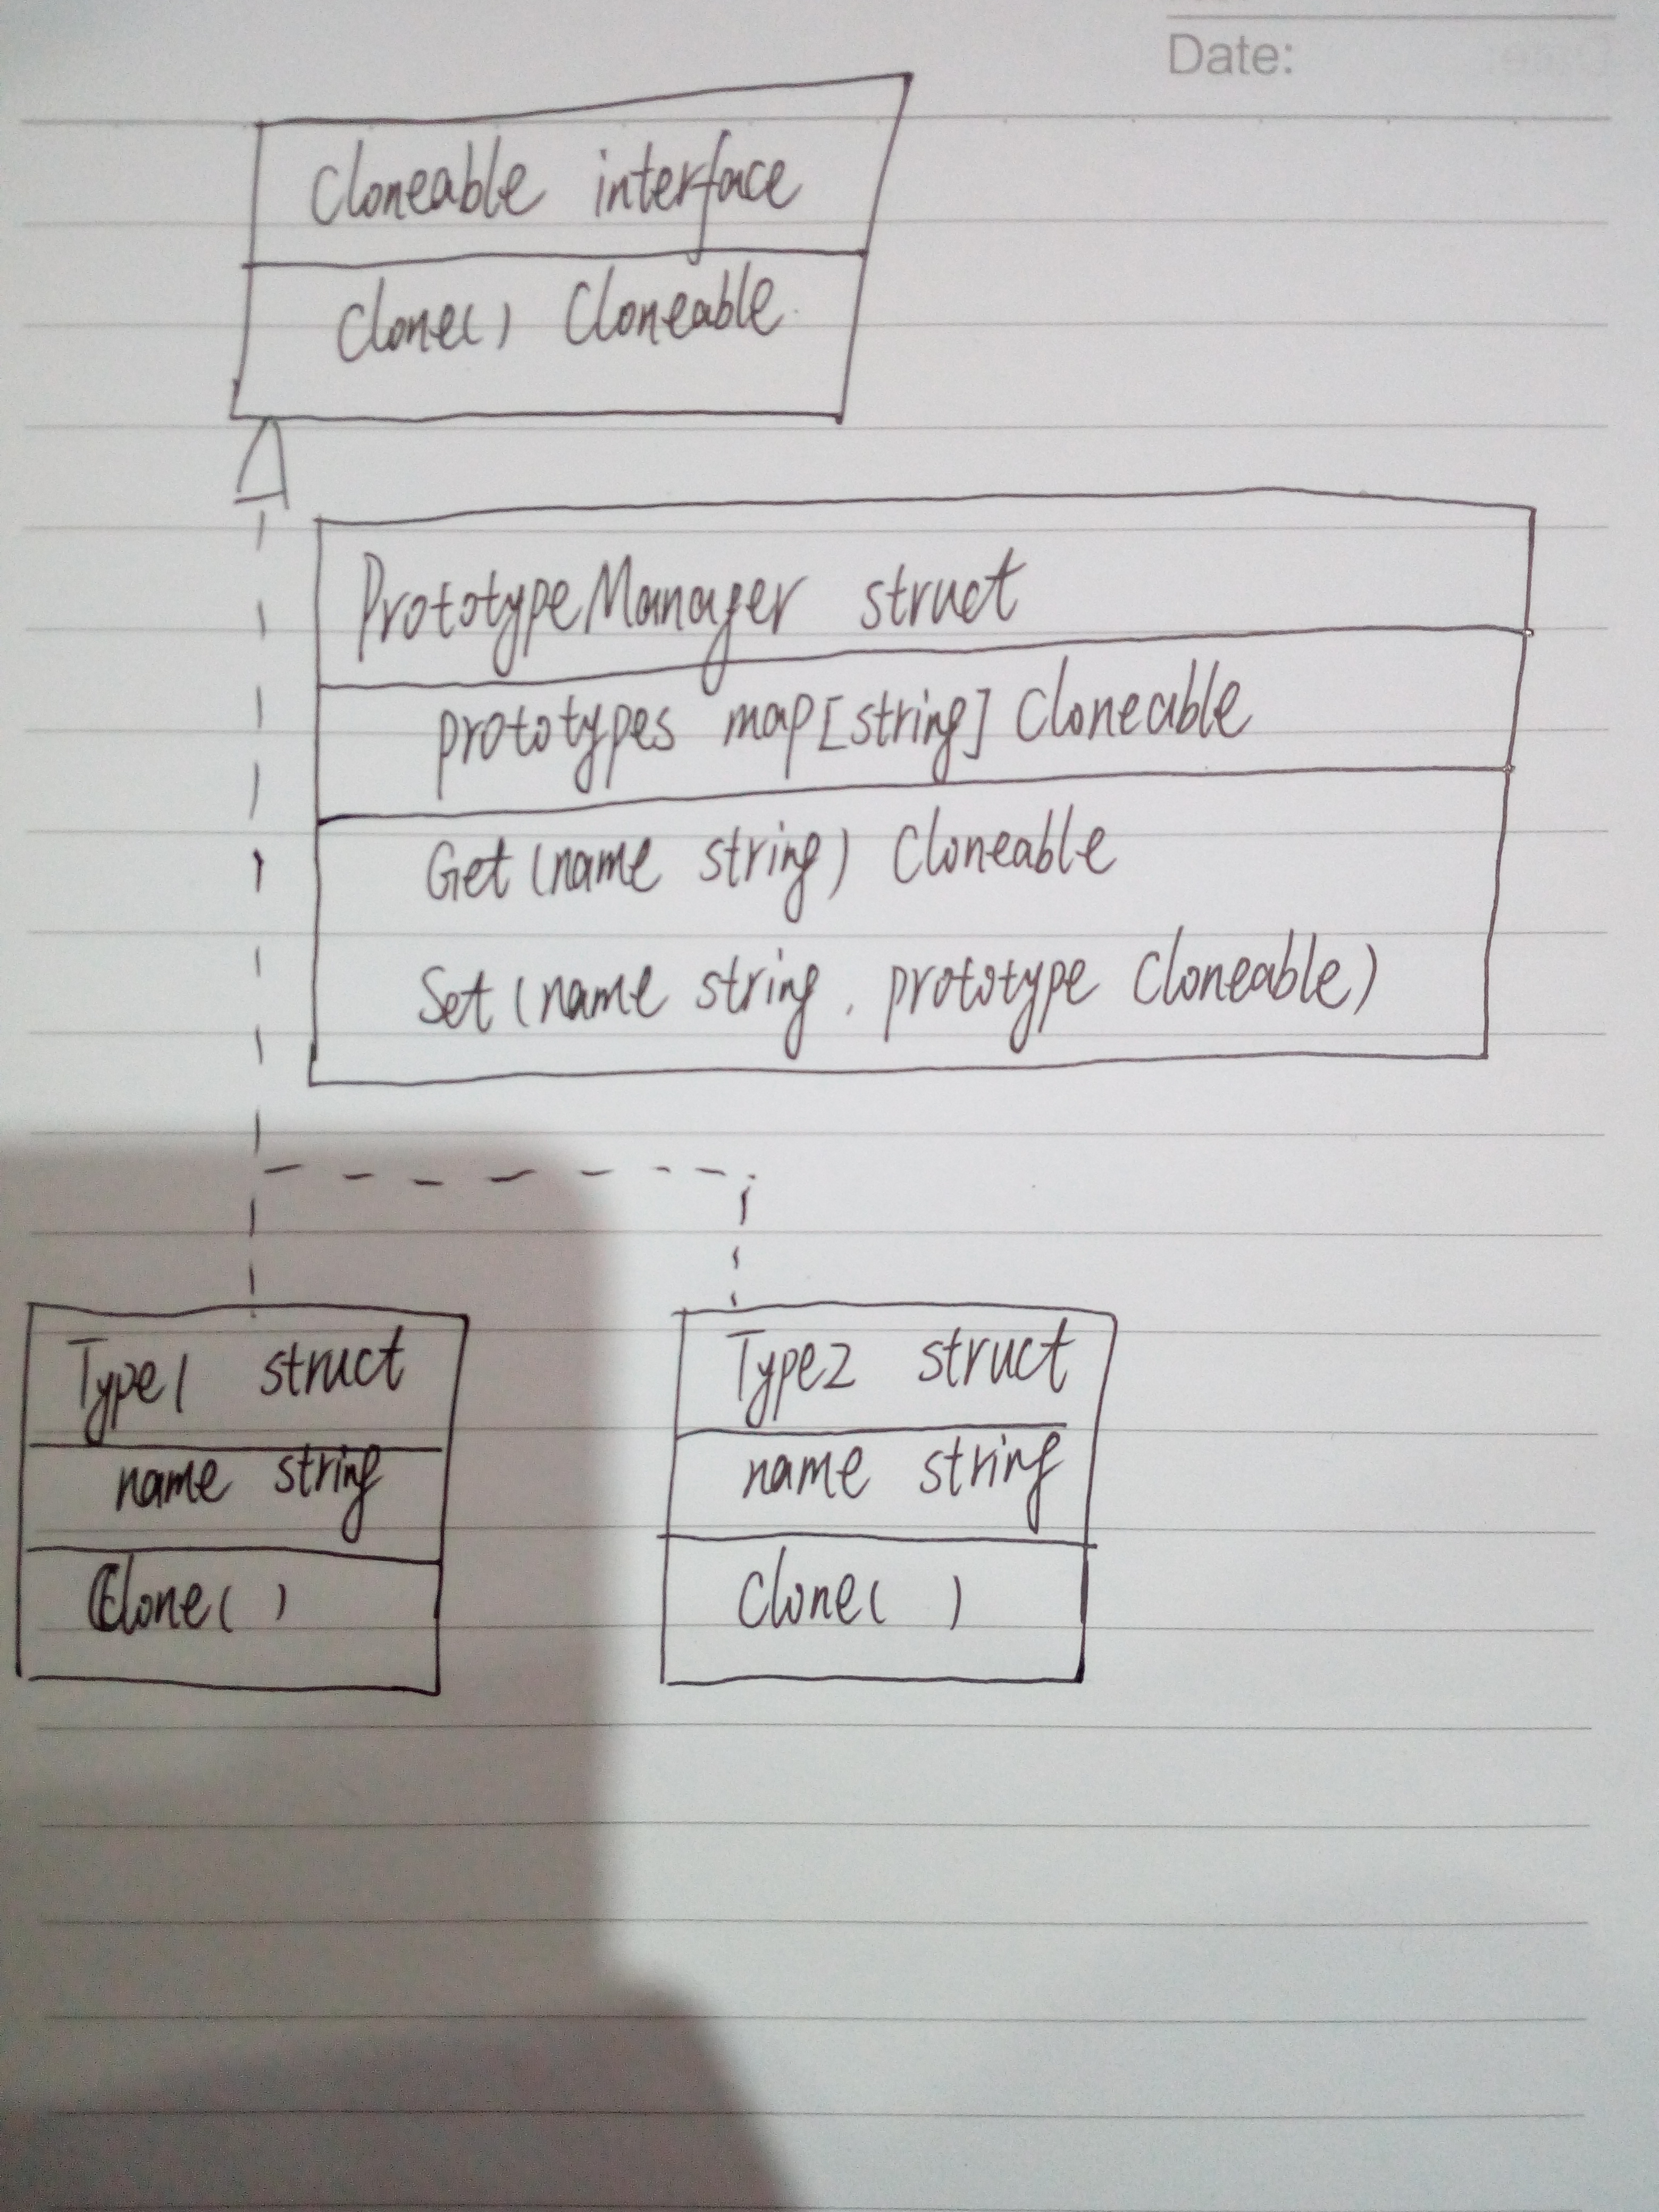 Date:
Cloneable interface
Clone() Cloneable
PrototypeManager struct
prototypes map[string] Cloneable
Get(name string) Cloneable
Set(name string, prototype Cloneable)
Type1 struct
name string
Clone( )
Type2 struct
name string
Clone( )